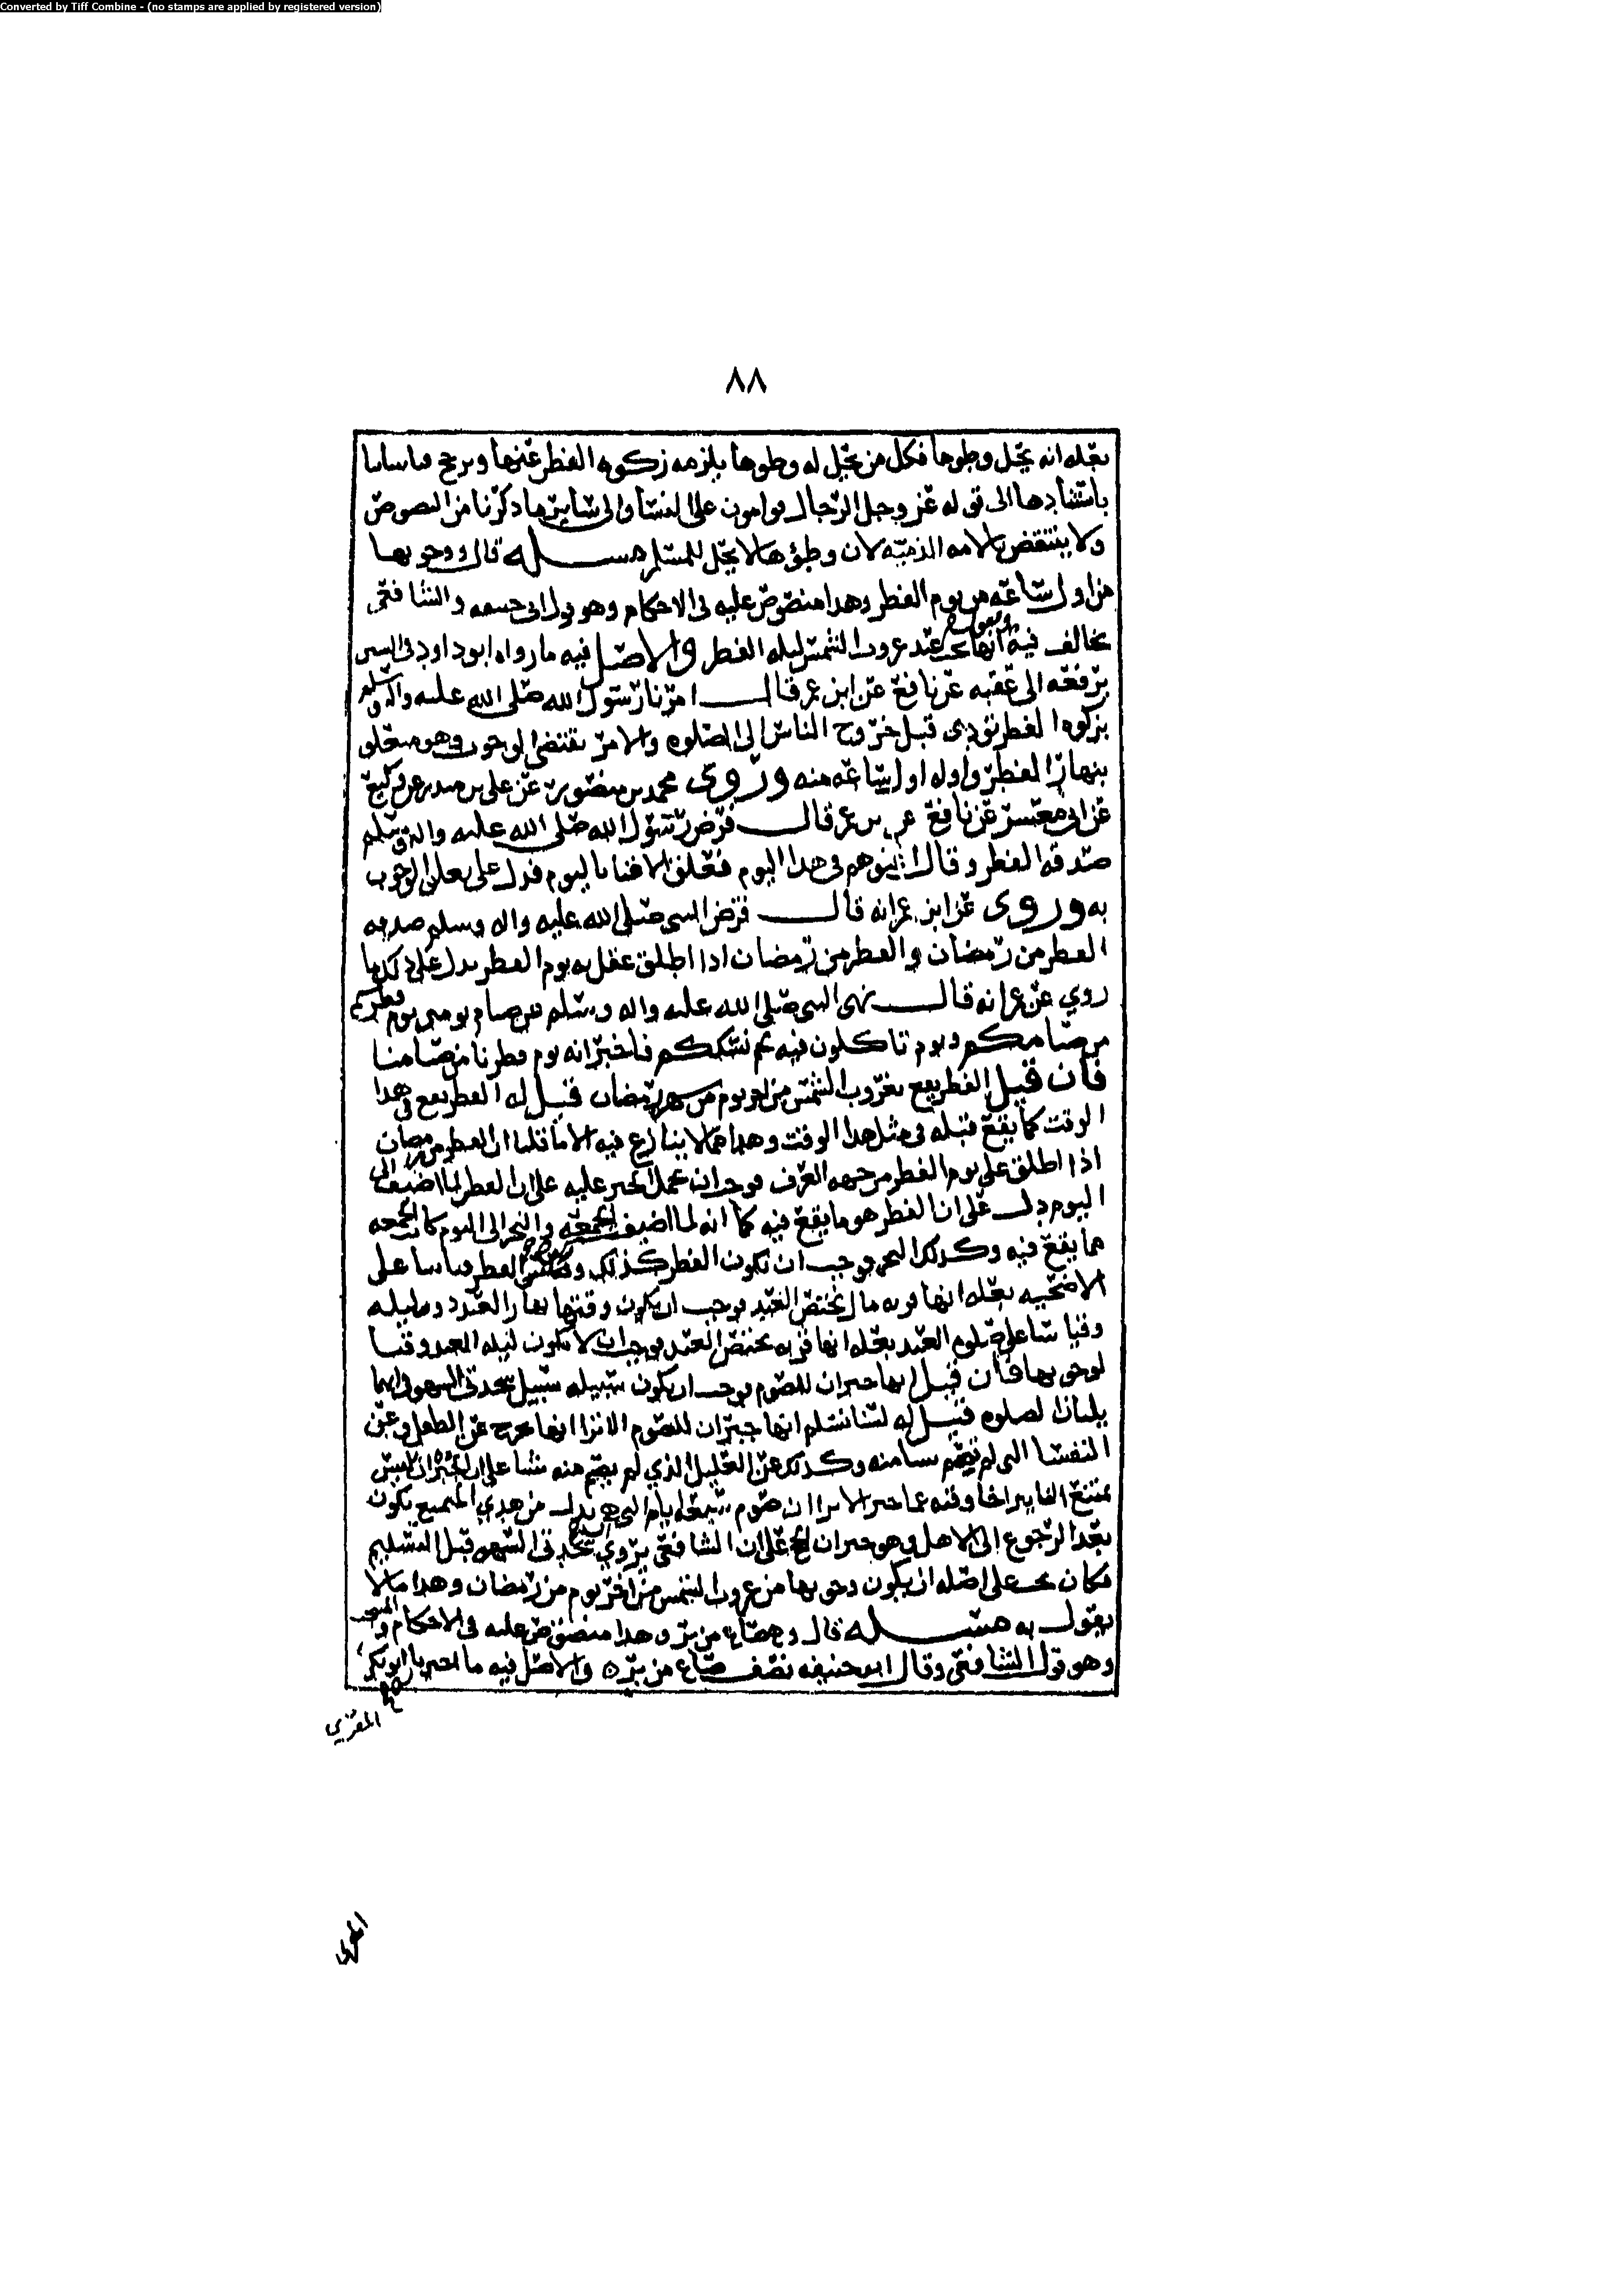 Converted by Tiff Combine - (no stamps are applied by registered version)
٨٨
بعله انه يحل وطوها فكل من يحل له وطوها يلزمه زكوه الفطر عنها ويرجح قياسنا
باستنادها الى قوله عز وجل الرجال قوامون على النسا والى سائر ما ذكرنا من النصوص
ولا ينتقض بالامه الذميه لان وطؤها لا يحل للمسلم مسله قال ووجوبها
من اول ساعه من يوم الفطر وهذا منصوص عليه في الاحكام وهو قول ابي حنيفه والشافعي
يخالف فيه ويقول انها تجب عند غروب الشمس ليله الفطر والاصل فيه ما رواه ابو داود في السنن
يرفعه الى عقبه عن نافع عن ابن عمر قال امرنا رسول الله صلى الله عليه واله وسلم
بزكوه الفطر تودى قبل خروج الناس الى الصلوه والامر يقتضي الوجوب وهو متعلق
بنهار الفطر واوله اول ساعه منه وروى محمد بن منصور عن علي بن منذر عن وكيع
عن ابي معشر عن نافع عن ابن عمر قال فرض رسول الله صلى الله عليه واله وسلم
صدقه الفطر وقال اغنوهم في هذا اليوم فعلق الاغنا باليوم فدل على تعلق الوجوب
به وروى عن ابن عمر انه قال فرض النبي صلى الله عليه واله وسلم صدقه
الفطر من رمضان والفطر من رمضان اذا اطلق عقل به يوم الفطر يدل على ذلك ما
روي عن عمر انه قال نهى النبي صلى الله عليه واله وسلم عن صيام يومين يوم فطركم
من صيامكم ويوم تاكلون فيه لحم نسككم فاخبر انه يوم فطرنا من صيامنا
فان قيل الفطر يقع بغروب الشمس من اخر يوم من شهر رمضان قيل له الفطر يقع في هذا
الوقت كما يقع قبله في مثل هذا الوقت وهذا مما لا ينازع فيه الا ما قلنا ان الفطر من رمضان
اذا اطلق على يوم الفطر من جهه العرف فوجب ان يحمل الخبر عليه على ان الفطر لما اضيف الى
اليوم دل على ان الفطر هو ما يقع فيه كما انه لما اضيف الجمعه والنحر الى اليوم كانت الجمعه
مما يقع فيه وكذلك النحر فوجب ان تكون الفطر كذلك الفطر قياسا على
الاضحيه بعله انها قربه مال تختص العيد فوجب ان يكون وقتها نهار العيد دون ليله
وقياسا على صلوه العيد بعله انها قربه تختص العيد فوجب ان لا تكون ليله العيد وقتا
لوجوبها فان قيل انها جبران للصوم فوجب ان يكون سبيله سبيل سجدتي السهو في انهما
يليان الصلوه قيل له لسنا نسلم انها جبران للصوم الا ترا انها تخرج عن الطفل وعن
النفسا التي لم تصم شيا منه وكذلك عن العليل الذي لم يصم منه شيا على ان الجبران ليس
يمتنع ان يتراخا وقته عما جبر الا ترا ان صوم سبعه ايام التي هي بدل من هدي المتمتع يكون
بعد الرجوع الى الاهل وهو جبران الحج على ان الشافعي يروي سجدتي السهو قبل التسليم
فكان يجب على اصله ان يكون وجوبها من غروب الشمس من اخر يوم من رمضان وهذا ما لا
يقول به مسله قال وهي صاع من بر وهذا منصوص عليه في الاحكام والمنتخب
وهو قول الشافعي وقال ابو حنيفه نصف صاع من بره والاصل فيه ما اخبرنا ابو بكر
المقري